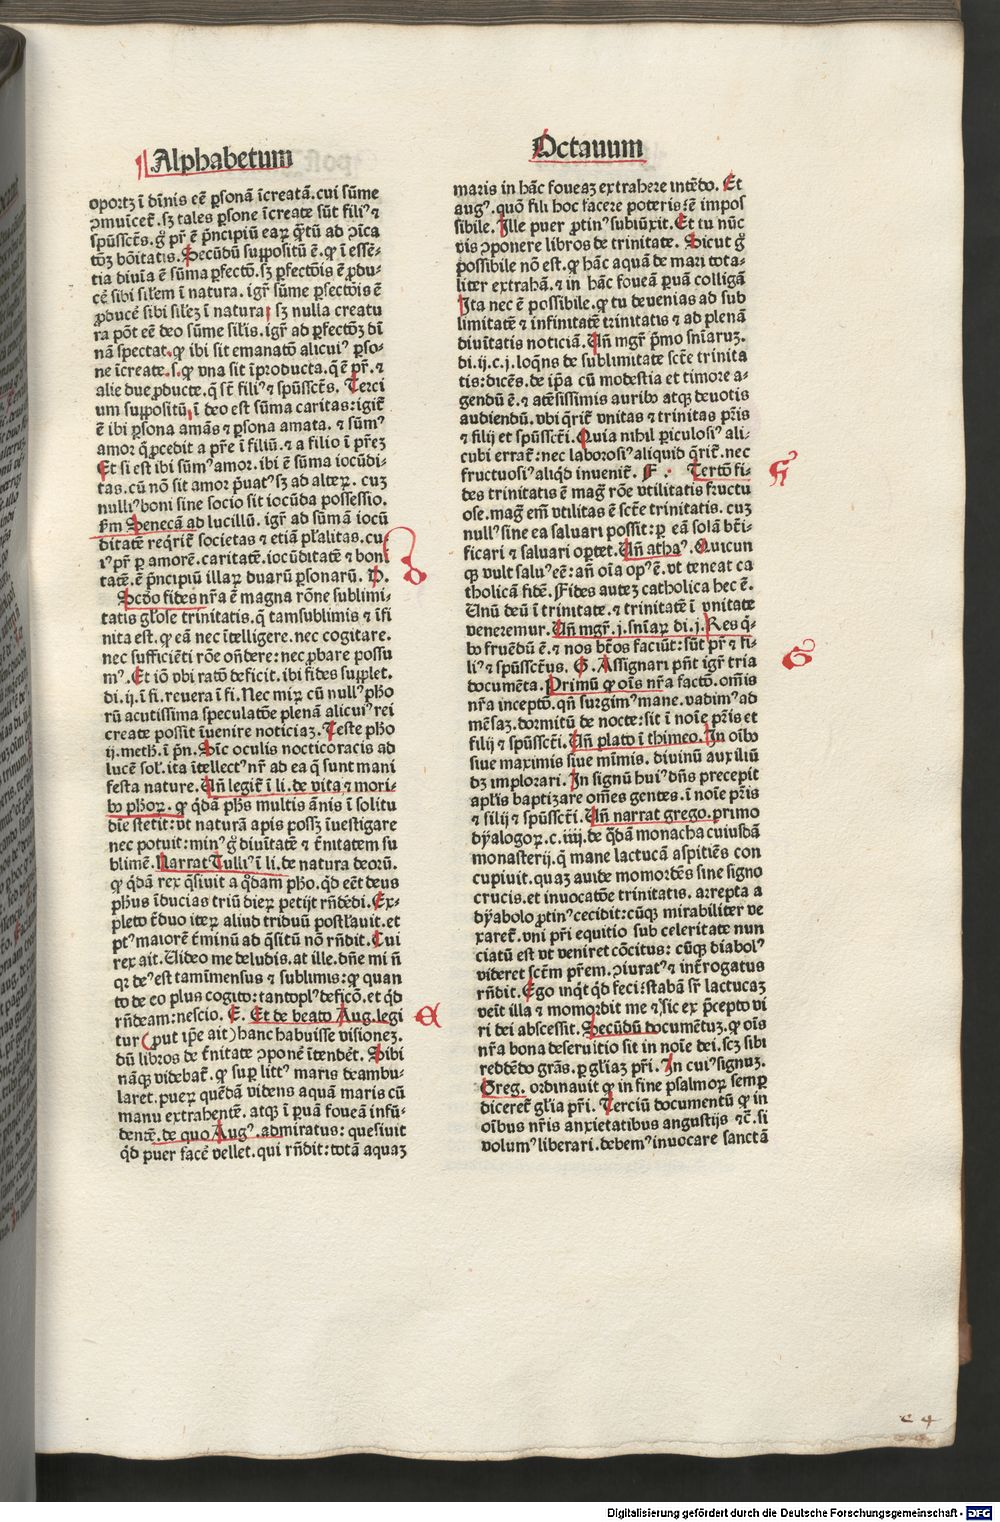 Alphabetum
oportꝫ ĩ dĩnis eẽ ꝑsonã ĩcreatã. cui sũme
ꝯmuĩcet̃. sꝫ tales ꝑsone ĩcreate sũt filiꝰ ⁊
spũssct̃s. gͦ pr̃ ẽ pñcipiũ eaꝝ q̃tũ ad ꝯ̃ica
tõꝫ bõitatis. Secũdũ suppositũ ẽ. ꝙ ĩ essẽ-
tia diuĩa ẽ sũma ꝑfectõ. sꝫ ꝑfectõis ẽ ꝓdu-
cẽ sibi sil̃em ĩ natura. igr̃ sũme ꝑfectõis ẽ
ꝓducẽ sibi sil̃eꝫ ĩ natura. sꝫ nulla creatu
ra põt eẽ deo sũme sil̃is. igr̃ ad ꝑfectõꝫ dĩ
nã spectat. ꝙ ibi sit emanatõ alicuiꝰ ꝑso-
ne ĩcreate. s. ꝙ vna sit ĩproducta. q̃ ẽ pr̃. ⁊
alie due ꝓducte. q̃ st̃ filiꝰ ⁊ spũssct̃s. Terci
um suppositũ, ĩ deo est sũma caritas: igit̃
ẽ ibi ꝑsona amãs ⁊ ꝑsona amata. ⁊ sũmꝰ
amor q̃ ꝓcedit a pr̃e ĩ filiũ. ⁊ a filio ĩ pr̃eꝫ
Et si est ibi sũmꝰ amor. ibi ẽ sũma iocũdi-
tas. cũ nõ sit amor p̃uatꝰ sꝫ ad alteꝝ. cuꝫ
nulliꝰ boni sine socio sit iocũda possessio.
ẜm Senecã ad lucillũ. igr̃ ad sũmã iocũ
ditatẽ req̃rit̃ societas ⁊ etiã pl̃alitas. cu
iꝰ pr̃ ꝑ amorẽ. caritatẽ. iocũditatẽ ⁊ boni
tatẽ. ẽ pñcipiũ illaꝝ duarũ ꝑsonarũ. D.
Scd̃o fides nr̃a ẽ magna rõne sublimi-
tatis gl̃ose trinitatis. q̃ tam sublimis ⁊ ĩfi
nita est. ꝙ eã nec ĩtelligere. nec cogitare.
nec sufficiẽti rõe oñdere: nec ꝓbare possu
mꝰ. Et iõ vbi ratõ deficit. ibi fides supplet.
di. ij. ĩ fi. reuera ĩ fi. Nec miꝝ cũ nullꝰ pho
rũ acutissima speculatõe plenã alicuiꝰ rei
create possit ĩuenire noticiaꝫ. Teste pho
ij. meth. ĩ pñ. Sic oculis nocticoracis ad
lucẽ sol̃. ita ĩtellectꝰ nr̃ ad ea q̃ sunt mani
festa nature. Uñ legit̃ ĩ li. de vita ⁊ mori-
bꝰ phoꝝ. ꝙ q̃dã phs multis ãnis ĩ solitu
die stetit: vt naturã apis possꝫ ĩuestigare
nec potuit: minꝰ gͦ diuĩtatẽ ⁊ t̃nitatem su
blimẽ. Narrat Tulliꝰ ĩ li. de natura deorũ.
ꝙ q̃dã rex q̃siuit a q̃dam pho. q̃d eẽt deus
phus ĩducias triũ dieꝝ petijt rñdẽdi. Ex-
pleto t̃duo iteꝝ aliud triduũ postl̃auit. et
ptꝰ maiorẽ t̃minũ ad q̃sitũ nõ rñdit. Cui
rex ait. Uideo me deludis. at ille. dñe mi ñ
qꝛ deꝰ est tam ĩmensus ⁊ sublimis: ꝙ quan
to de eo plus cogito: tanto plꝰ deficõ. et q̃d
rñdeam: nescio. E. Et de beato Aug. legi
tur (put ip̃e ait) hanc habuisse visioneꝫ.
dũ libros de t̃nitate ꝯponẽ ĩtendẽt. Sibi
nãqꝫ videbat̃. ꝙ suꝑ littꝰ maris deambu-
laret. pueꝝ quẽdã videns aquã maris cũ
manu extrahentẽ. atqꝫ ĩ ꝑuã foueã infũ-
dentẽ. de quo Augꝰ. admiratus: quesiuit
q̃d puer facẽ vellet. qui rñdit: totã aquaꝫ
Octauum
maris in hãc foueaꝫ extrahere intẽdo. Et
augꝰ. quõ fili hoc facere poteris: ẽ impos
sibile. Ille puer ꝓtinꝰ subiũxit. Et tu nũc
vis ꝯponere libros de trinitate. Sicut gͦ
possibile nõ est. ꝙ hãc aquã de mari tota-
liter extrahã. ⁊ in hãc foueã ꝑuã colligã
Ita nec ẽ possibile. ꝙ tu deuenias ad sub
limitatẽ ⁊ infinitatẽ trinitatis ⁊ ad plenã
diuĩtatis noticiã. Uñ mgr̃ p̃mo sñiaruꝫ.
di. ij. c. j. loq̃ns de sublimitate sct̃e trinita
tis: dicẽs. de ip̃a cũ modestia et timore a-
gendũ ẽ. ⁊ atẽtissimis auribꝰ atqꝫ deuotis
audiendũ. vbi q̃rit̃ vnitas ⁊ trinitas pr̃is
⁊ filij et spũsscti. Quia nihil ꝑiculosiꝰ ali-
cubi errat̃: nec laborosiꝰ aliquid q̃rit̃. nec
fructuosiꝰ aliq̃d inuenit̃. F. Tertõ fi-
des trinitatis ẽ mag̃ rõe vtilitatis fructu
ose. mag̃ em̃ vtilitas ẽ sct̃e trinitatis. cuꝫ
nullꝰ sine ea saluari possit: ꝑ eã solã bt̃i-
ficari ⁊ saluari oꝑtet. Uñ athaꝰ. Quicun
qꝫ vult saluꝰ eẽ: añ oĩa opꝰ ẽ. vt teneat ca
tholicã fidẽ. Fides auteꝫ catholica hec ẽ.
Unũ deũ ĩ trinitate. ⁊ trinitatẽ ĩ vnitate
veneremur. Uñ mgr̃. j. sñiaꝝ di. j. Res q̃-
bꝰ fruẽdũ ẽ. ⁊ nos bt̃os faciũt: sũt pr̃ ⁊ fi-
liꝰ ⁊ spũssct̃us. G. Assignari pñt igr̃ tria
documẽta. Primũ ꝙ oĩs nr̃a factõ. om̃is
nr̃a inceptõ. qñ surgimꝰ mane. vadimꝰ ad
mẽsaꝫ. dormitũ de nocte: sit ĩ noĩe pr̃is et
filij ⁊ spũssct̃i. Uñ plato ĩ thimeo. In oĩbꝰ
siue maximis siue mĩmis. diuinũ auxiliũ
dꝫ implorari. In signũ huiꝰ dñs precepit
apl̃is baptizare om̃es gentes. ĩ noĩe pr̃is
⁊ filij ⁊ spũssct̃i. Uñ narrat grego. primo
dyalogoꝝ. c. iiij. de q̃dã monacha cuiusdã
monasterij. q̃ mane lactucã aspitiẽs con
cupiuit. quaꝫ auide momordẽs sine signo
crucis. et inuocatõe trinitatis. arrepta a
dyabolo ꝓtinꝰ cecidit: cũqꝫ mirabiliter ve
xaret̃. vni pr̃i equitio sub celeritate nun
ciatũ est vt veniret cõcitus: cũqꝫ diabolꝰ
videret sct̃m pr̃em. ꝯiuratꝰ ⁊ int̃rogatus
rñdit. Ego inq̃t q̃d feci: stabã sr̃ lactucaꝫ
veĩt illa ⁊ momordit me ⁊ sic ex p̃cepto vi
ri dei abscessit. Secũdũ documẽtuꝫ. ꝙ oĩs
nr̃a bona deseruitio sit in noĩe dei. scꝫ sibi
reddẽdo grãs. ꝑ gl̃iaꝫ pr̃i. In cuiꝰ signuꝫ.
Greg. ordinauit ꝙ in fine psalmoꝝ semꝑ
diceret̃ gl̃ia pr̃i. Terciũ documentũ ꝙ in
oĩbus nr̃is anxietatibus angustijs ⁊c̃. si
volumꝰ liberari. debemꝰ inuocare sanctã
D
E
F
G
c 4
Digitalisierung gefördert durch die Deutsche Forschungsgemeinschaft - DFG